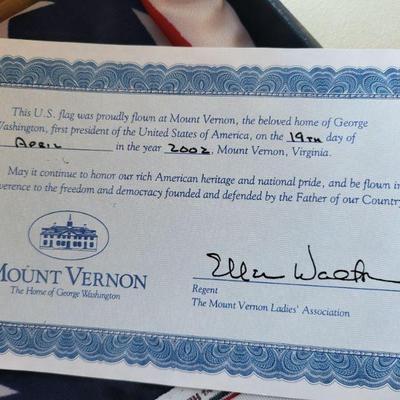 This U.S. flag was proudly flown at Mount Vernon, the beloved home of George
Washington, first president of the United States of America, on the 19TH day of
APRIL in the year 2002, Mount Vernon, Virginia.
May it continue to honor our rich American heritage and national pride, and be flown in
reverence to the freedom and democracy founded and defended by the Father of our Country
MOUNT VERNON
The Home of George Washington
Ellen Walton
Regent
The Mount Vernon Ladies' Association